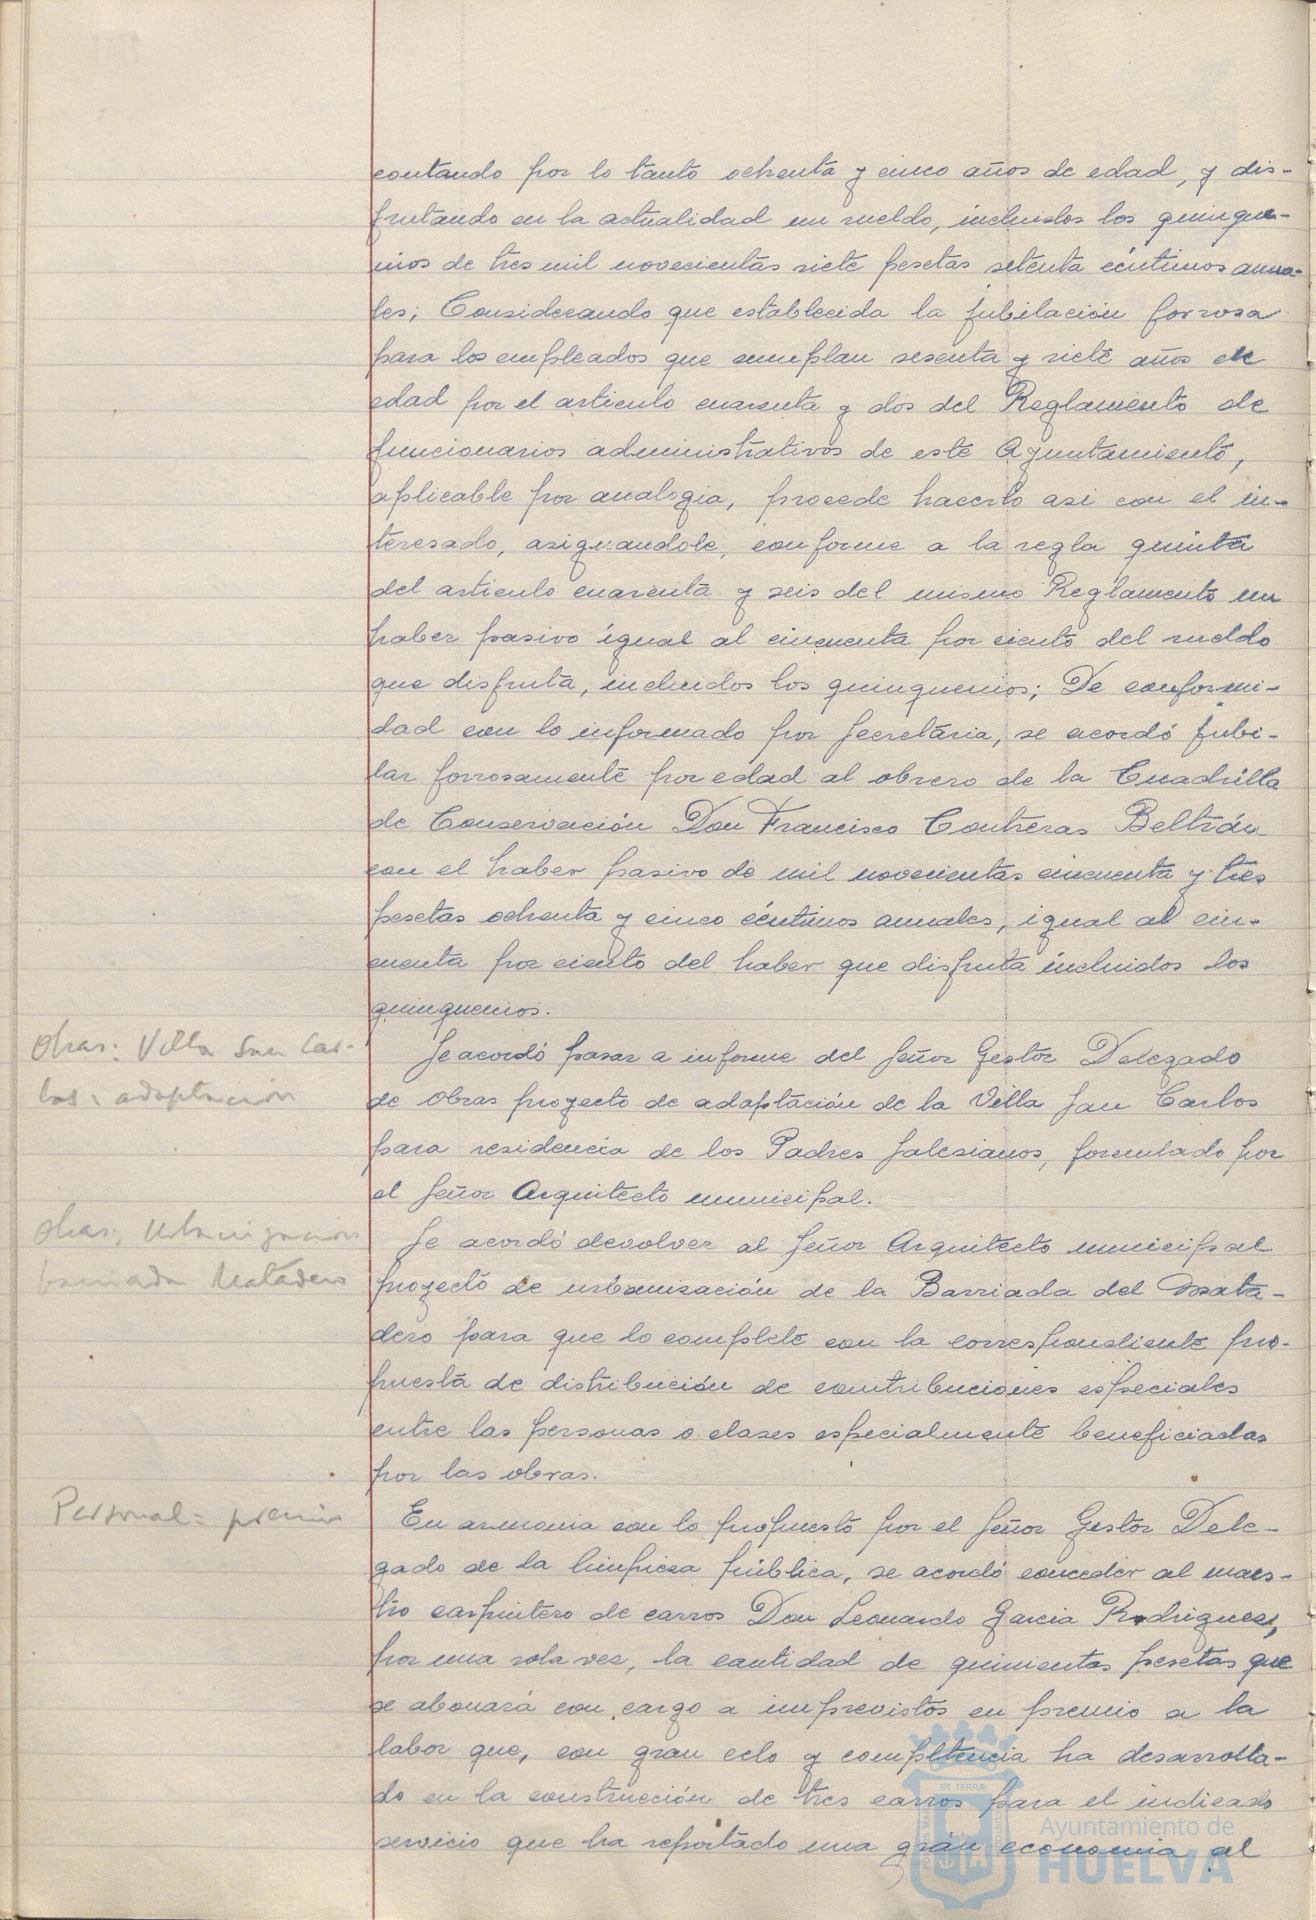 contando por lo tanto ochenta y cinco años de edad, y dis-
frutando en la actualidad un sueldo, incluidos los quinque-
nios de tres mil novecientas siete pesetas setenta céntimos anua-
les; Considerando que establecida la jubilación forzosa
para los empleados que cumplan sesenta y siete años de
edad por el articulo cuarenta y dos del Reglamento de
funcionarios administrativos de este Ayuntamiento,
aplicable por analogia, procede hacerlo asi con el in-
teresado, asignandole, conforme a la regla quinta
del articulo cuarenta y seis del mismo Reglamento un
haber pasivo igual al cincuenta por ciento del sueldo
que disfruta, incluidos los quinquenios; De conformi-
dad con lo informado por Secretaria, se acordó jubi-
lar forzosamente por edad al obrero de la Cuadrilla
de Conservación Don Francisco Contreras Beltrán
con el haber pasivo de mil novecientas cincuenta y tres
pesetas ochenta y cinco céntimos anuales, igual al cin-
cuenta por ciento del haber que disfruta incluidos los
quinquenios.
Obras: Villa San Car-
los: adaptación
Se acordó pasar a informe del Señor Gestor Delegado
de Obras proyecto de adaptación de la Villa San Carlos
para residencia de los Padres Salesianos, formulado por
el Señor Arquitecto municipal.
Obras: Urbanización
barriada Matadero
Se acordó devolver al Señor Arquitecto municipal
proyecto de urbanización de la Barriada del Mata-
dero para que lo complete con la correspondiente pro-
puesta de distribución de contribuciones especiales
entre las personas o clases especialmente beneficiadas
por las obras.
Personal = premio
En armonia con lo propuesto por el Señor Gestor Dele-
gado de la limpieza pública, se acordó conceder al maes-
tro carpintero de carros Don Leonardo Garcia Rodriguez,
por una sola vez, la cantidad de quinientas pesetas que
se abonará con cargo a imprevistos en premio a la
labor que, con gran celo y competencia ha desarrolla-
do en la construcción de tres carros para el indicado
servicio que ha reportado una gran economia al
Ayuntamiento de
HUELVA